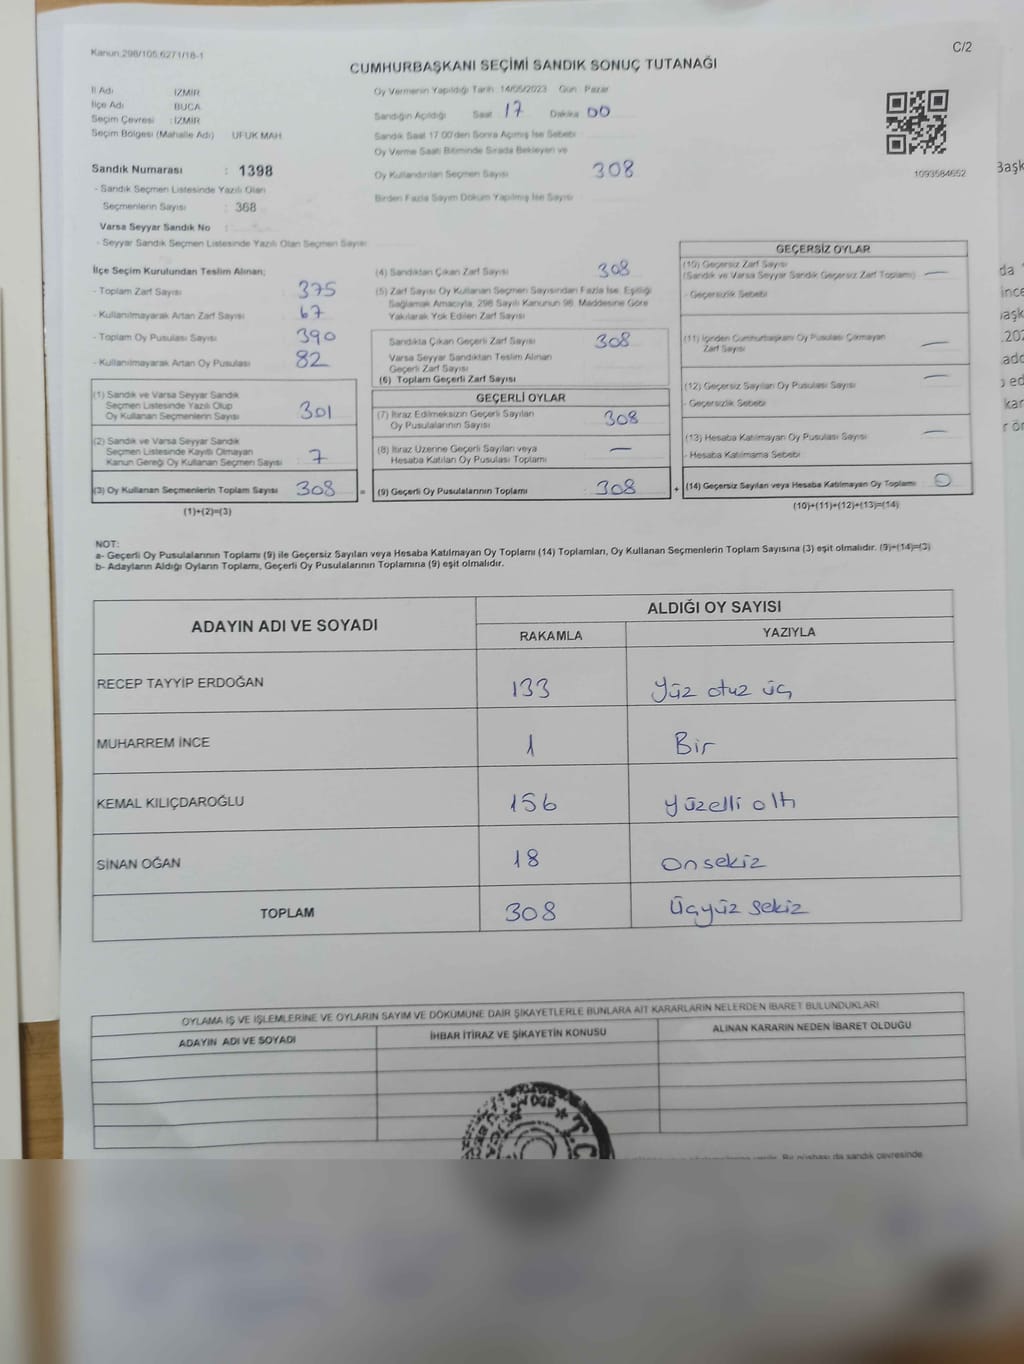 Kanun:298/105,6271/18-1
C/2
CUMHURBAŞKANI SEÇİMİ SANDIK SONUÇ TUTANAĞI
İl Adı İZMİR
İlçe Adı BUCA
Seçim Çevresi : İZMİR
Seçim Bölgesi (Mahalle Adı) UFUK MAH
Sandık Numarası : 1398
- Sandık Seçmen Listesinde Yazılı Olan
Seçmenlerin Sayısı : 368
Varsa Seyyar Sandık No :
- Seyyar Sandık Seçmen Listesinde Yazılı Olan Seçmen Sayısı
Oy Vermenin Yapıldığı Tarih :14/05/2023 Gün : Pazar
Sandığın Açıldığı Saat 17 Dakika 00
Sandık Saat 17:00'den Sonra Açılmış İse Sebebi
Oy Verme Saati Bitiminde Sırada Bekleyen ve
Oy Kullandırılan Seçmen Sayısı 308
Birden Fazla Sayım Döküm Yapılmış İse Sayısı
1093584652
İlçe Seçim Kurulundan Teslim Alınan;
- Toplam Zarf Sayısı : 375
- Kullanılmayarak Artan Zarf Sayısı : 67
- Toplam Oy Pusulası Sayısı : 390
- Kullanılmayarak Artan Oy Pusulası : 82
(1) Sandık ve Varsa Seyyar Sandık
Seçmen Listesinde Yazılı Olup
Oy Kullanan Seçmenlerin Sayısı : 301
(2) Sandık ve Varsa Seyyar Sandık
Seçmen Listesinde Kayıtlı Olmayan
Kanun Gereği Oy Kullanan Seçmen Sayısı : 7
(3) Oy Kullanan Seçmenlerin Toplam Sayısı : 308
(1)+(2)=(3)
(4) Sandıktan Çıkan Zarf Sayısı 308
(5) Zarf Sayısı Oy Kullanan Seçmen Sayısından Fazla İse, Eşitliği
Sağlamak Amacıyla, 298 Sayılı Kanunun 98. Maddesine Göre
Yakılarak Yok Edilen Zarf Sayısı
Sandıkta Çıkan Geçerli Zarf Sayısı : 308
Varsa Seyyar Sandıktan Teslim Alınan
Geçerli Zarf Sayısı
(6) Toplam Geçerli Zarf Sayısı
GEÇERLİ OYLAR
(7) İtiraz Edilmeksizin Geçerli Sayılan
Oy Pusulalarının Sayısı : 308
(8) İtiraz Üzerine Geçerli Sayılan veya
Hesaba Katılan Oy Pusulası Toplamı : —
= (9) Geçerli Oy Pusulalarının Toplamı : 308
GEÇERSİZ OYLAR
(10) Geçersiz Zarf Sayısı
(Sandık ve Varsa Seyyar Sandık Geçersiz Zarf Toplamı) : —
- Geçersizlik Sebebi
(11) İçinden Cumhurbaşkanı Oy Pusulası Çıkmayan
Zarf Sayısı : —
(12) Geçersiz Sayılan Oy Pusulası Sayısı : —
- Geçersizlik Sebebi
(13) Hesaba Katılmayan Oy Pusulası Sayısı : —
- Hesaba Katılmama Sebebi
+ (14) Geçersiz Sayılan veya Hesaba Katılmayan Oy Toplamı : 0
(10)+(11)+(12)+(13)=(14)
NOT:
a- Geçerli Oy Pusulalarının Toplamı (9) ile Geçersiz Sayılan veya Hesaba Katılmayan Oy Toplamı (14) Toplamları, Oy Kullanan Seçmenlerin Toplam Sayısına (3) eşit olmalıdır. (9)+(14)=(3)
b- Adayların Aldığı Oyların Toplamı, Geçerli Oy Pusulalarının Toplamına (9) eşit olmalıdır.
ADAYIN ADI VE SOYADI
ALDIĞI OY SAYISI
RAKAMLA YAZIYLA
RECEP TAYYİP ERDOĞAN 133 Yüz otuz üç
MUHARREM İNCE 1 Bir
KEMAL KILIÇDAROĞLU 156 yüzelli altı
SİNAN OĞAN 18 Onsekiz
TOPLAM 308 Üçyüz sekiz
OYLAMA İŞ VE İŞLEMLERİNE VE OYLARIN SAYIM VE DÖKÜMÜNE DAİR ŞİKAYETLERLE BUNLARA AİT KARARLARIN NELERDEN İBARET BULUNDUKLARI
ADAYIN ADI VE SOYADI İHBAR İTİRAZ VE ŞİKAYETİN KONUSU ALINAN KARARIN NEDEN İBARET OLDUĞU
T.C.